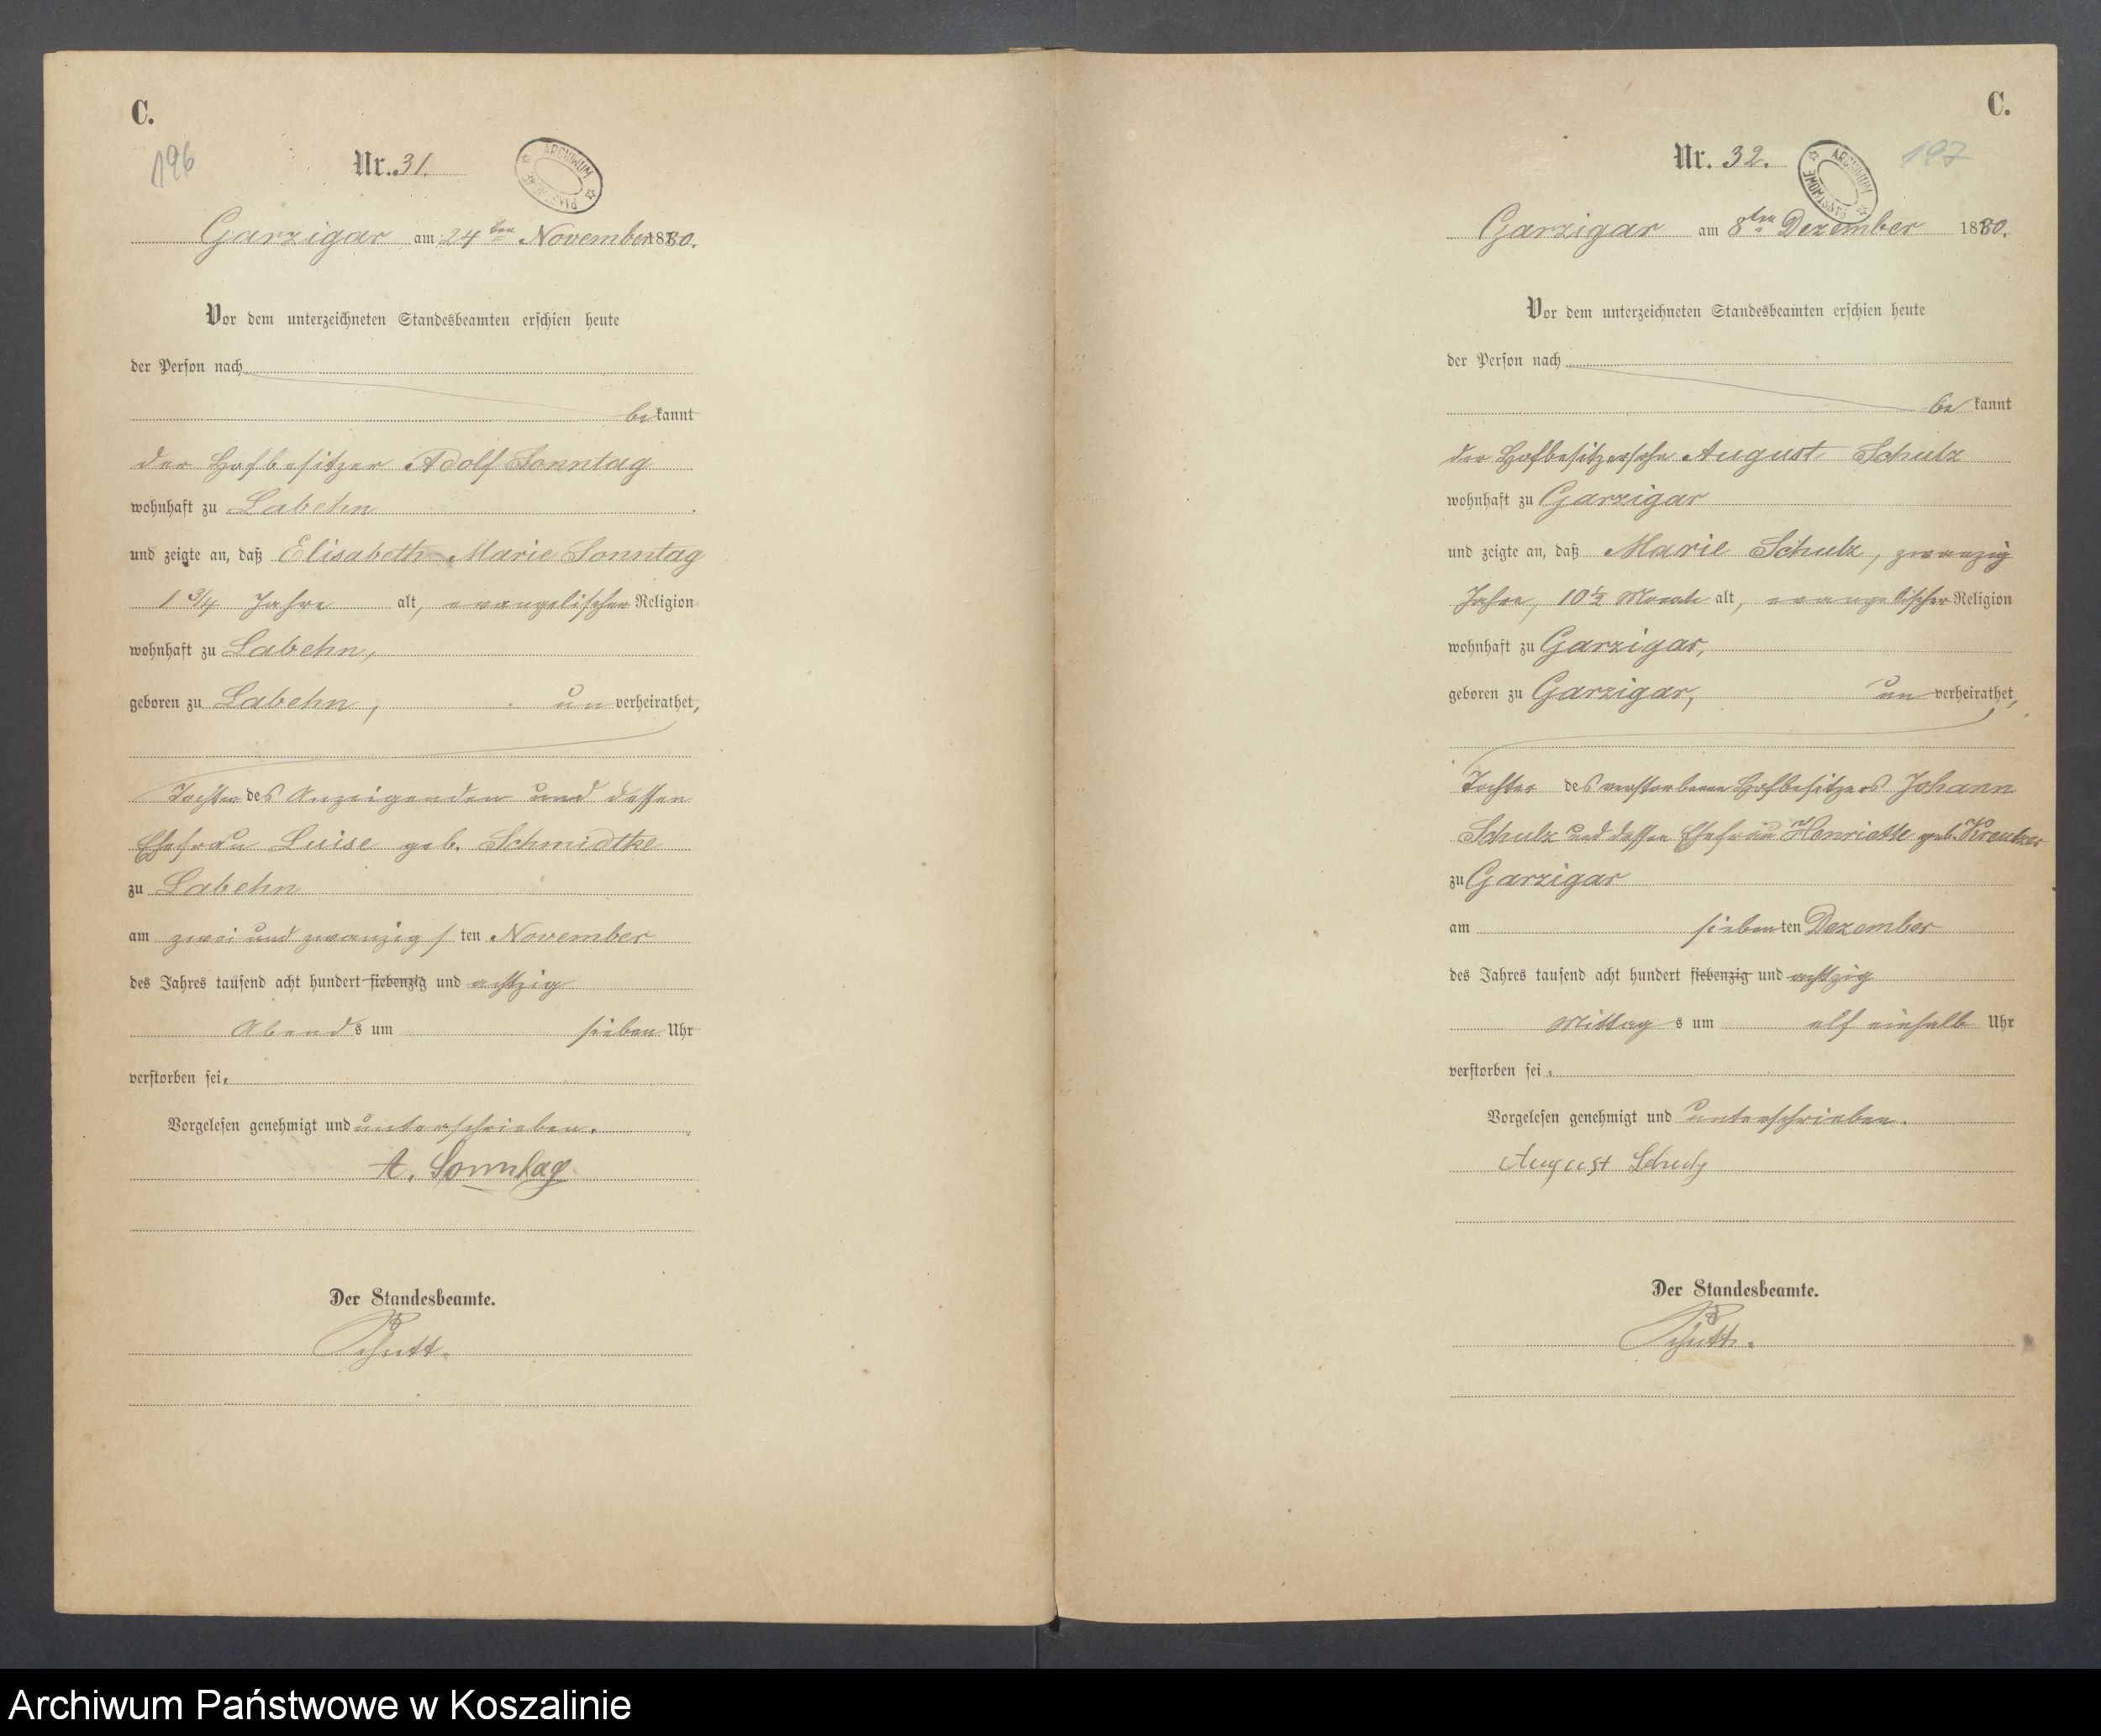 C.
196
Nr. 31.
ARCHIWUM
Garzigar am 24ten November 1880.
Vor dem unterzeichneten Standesbeamten erschien heute
der Person nach
bekannt
der Hofbesitzer Adolf Sonntag
wohnhaft zu Labehn
und zeigte an, daß Elisabeth Marie Sonntag
1 3/4 Jahre alt, evangelischer Religion
wohnhaft zu Labehn,
geboren zu Labehn, unverheirathet,
Tochter des Anzeigenden und dessen
Ehefrau Luise geb. Schmidtke
zu Labehn
am zwei und zwanzigsten November
des Jahres tausend acht hundert siebenzig und achtzig
Abends um sieben Uhr
verstorben sei.
Vorgelesen genehmigt und unterschrieben.
A. Sonntag
Der Standesbeamte.
C.
Nr. 32.
197
ARCHIWUM PAŃSTWOWE
Garzigar am 8ten Dezember 1880.
Vor dem unterzeichneten Standesbeamten erschien heute
der Person nach
be kannt
der Hofbesitzersohn August Schulz
wohnhaft zu Garzigar
und zeigte an, daß Marie Schulz, zwanzig
Jahre, 10 1/2 Monate alt, evangelischer Religion
wohnhaft zu Garzigar,
geboren zu Garzigar, unverheirathet,
Tochter des verstorbenen Hofbesitzers Johann
Schulz und dessen Ehefrau Henriette geb. Kreutzer
zu Garzigar
am siebenten Dezember
des Jahres tausend acht hundert siebenzig und achtzig
Mittags um elf einhalb Uhr
verstorben sei.
Vorgelesen genehmigt und unterschrieben.
August Schulz
Der Standesbeamte.
Archiwum Państwowe w Koszalinie